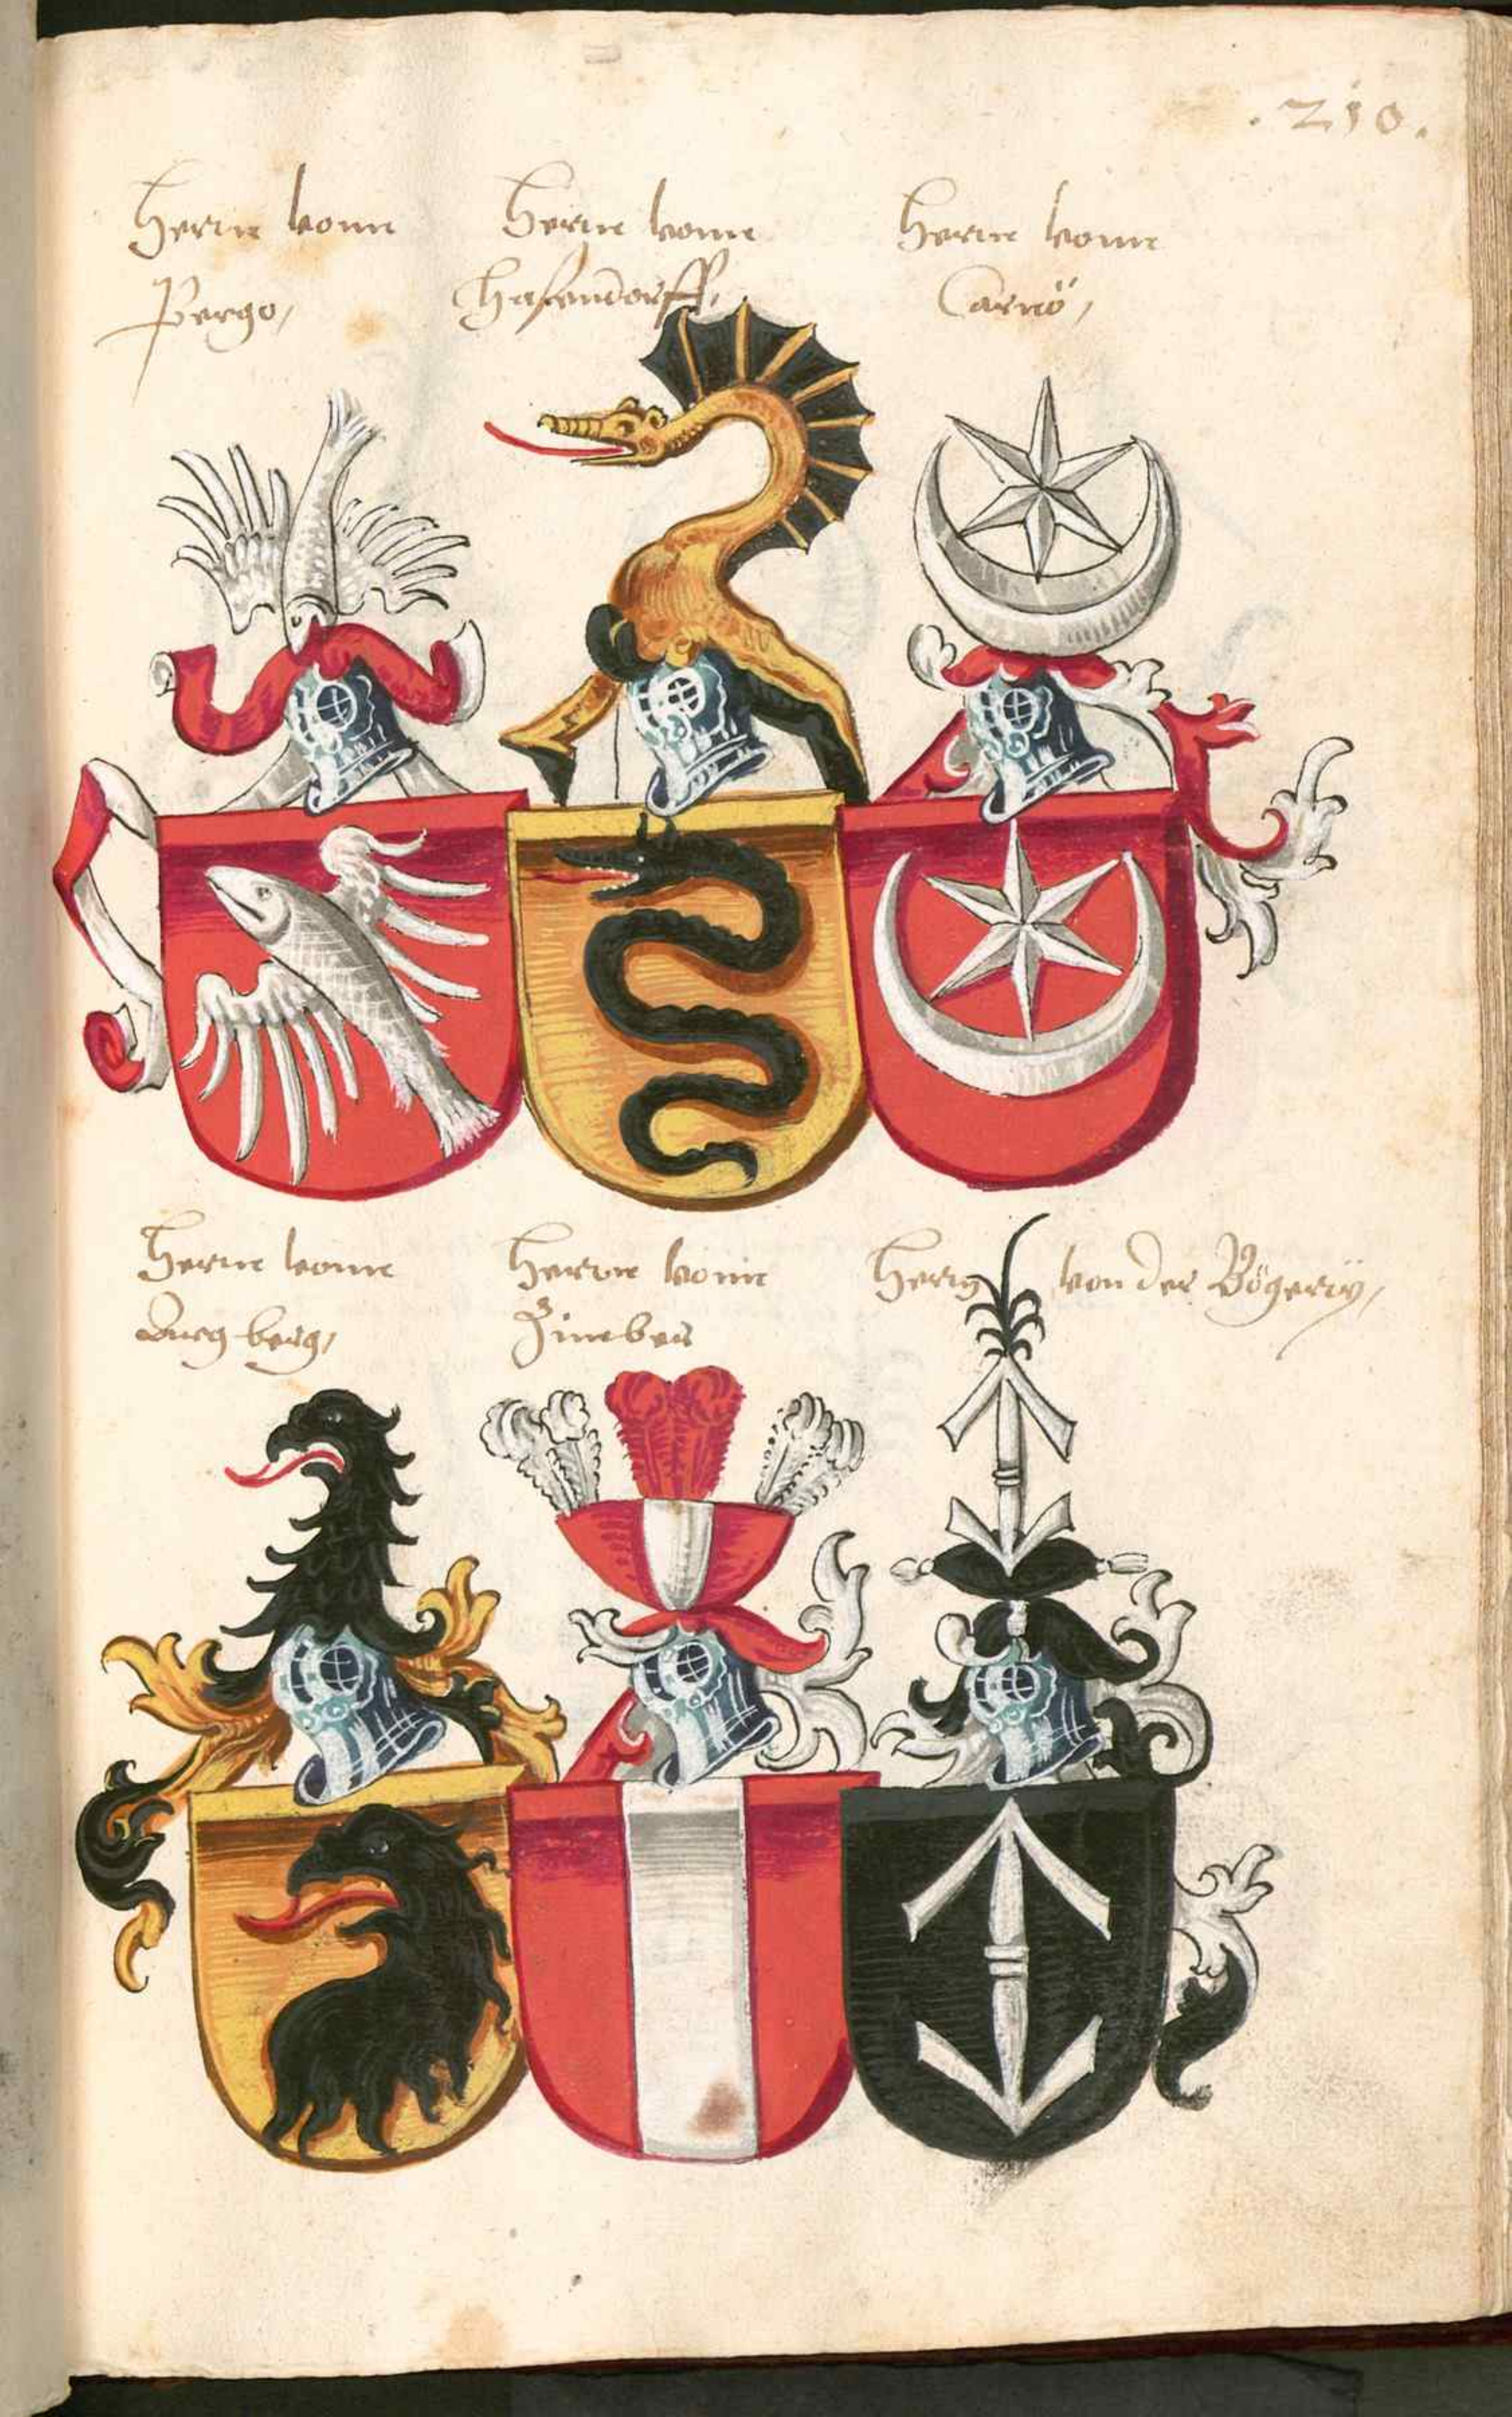 .210.
Herrn vonn
Pergo,
Herrn vonn
Hasendorff,
Herrn vonn
Carnö,
Herrn vonn
Burgberg,
Herrn vonn
Zimber
Herrn von der Bögerÿ,